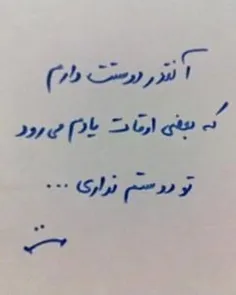 آنقدر دوستت دارم
که بعضی اوقات یادم می رود
تو دوستم نداری ...